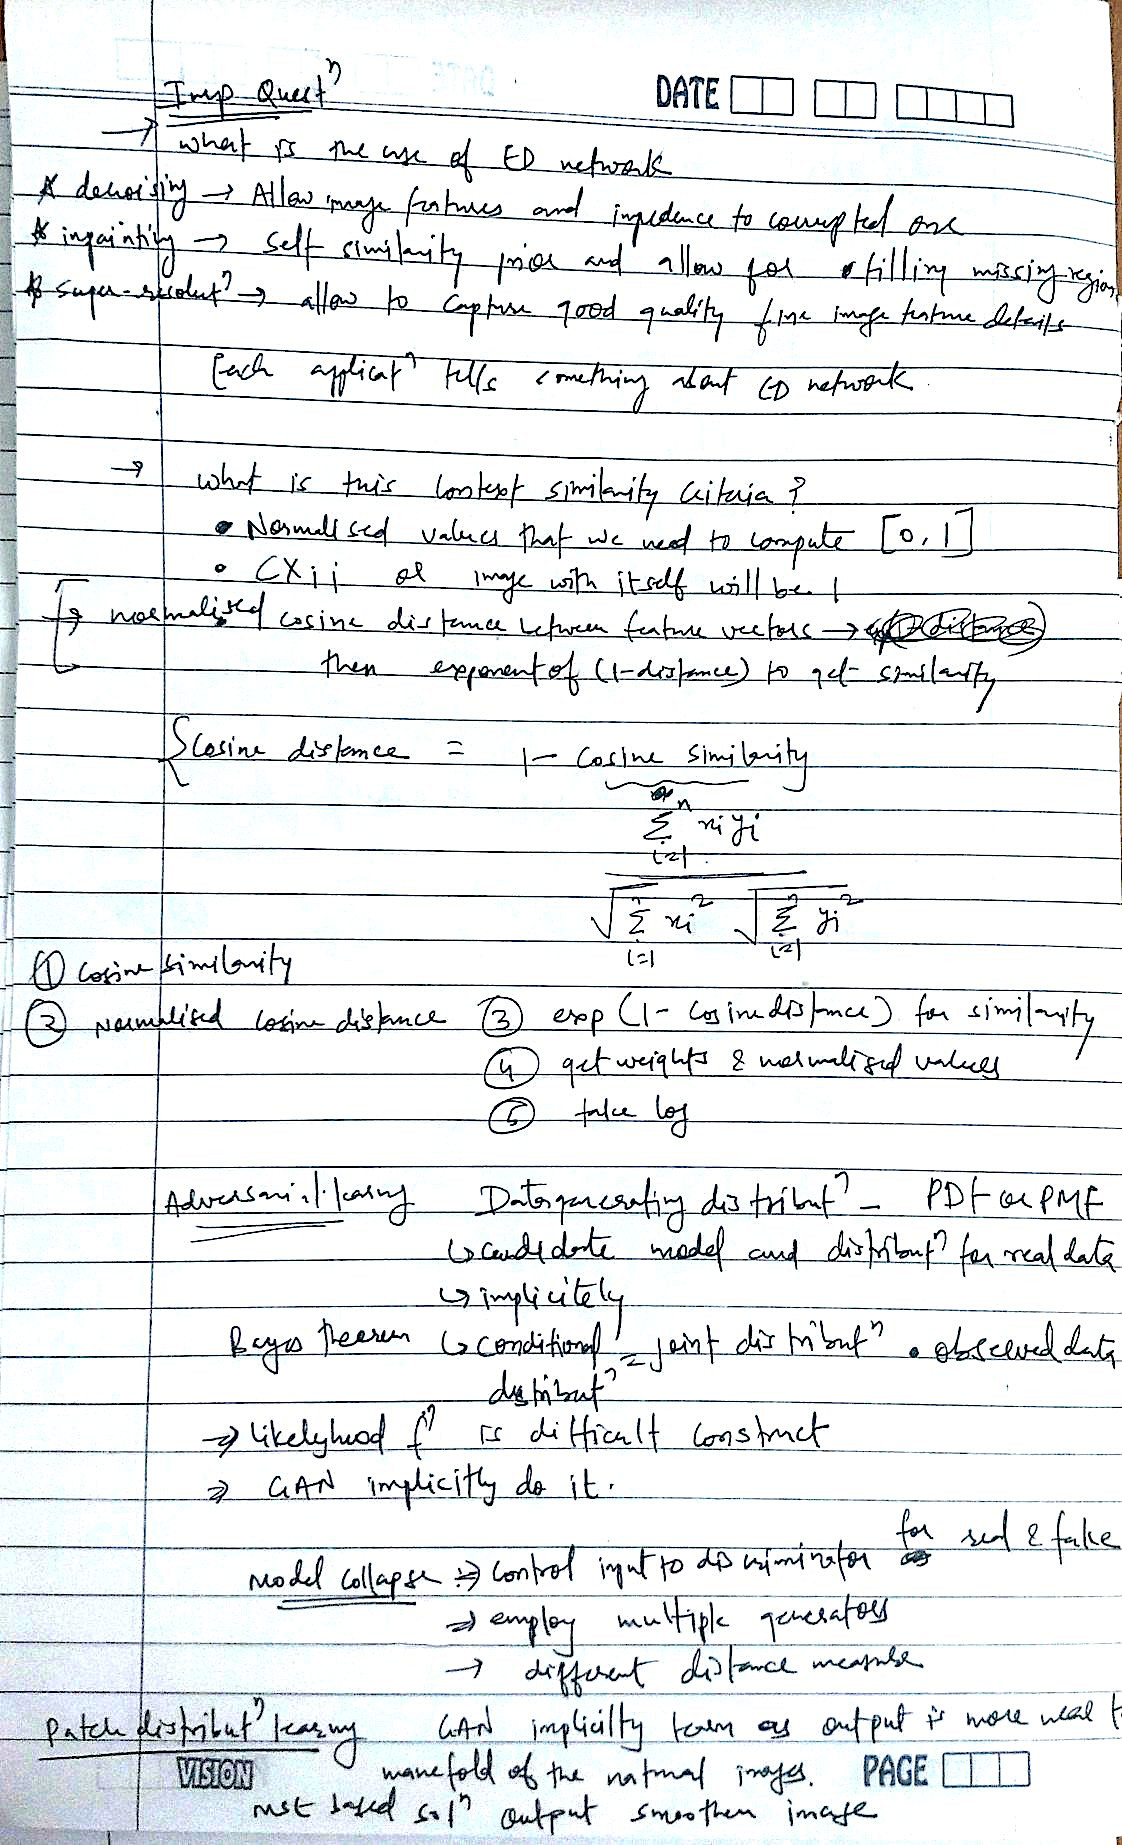 DATE
Imp Questⁿ
→ what is the use of ED network
* denoising → Allow image features and impedence to corrupted one
* inpainting → self similarity prior and allow for filling missing region
* super-resolutⁿ → allow to capture good quality fine image feature details
Each applicatⁿ tells something about ED network.
→ what is this context similarity criteria?
• Normalised values that we need to compute [0, 1]
• CXij of image with itself will be 1
→ normalised cosine distance between feature vectors →
then exponent of (1-distance) to get similarity
{ Cosine distance = 1 - cosine similarity
n
Σ xi yi
i=1
√ n Σ i=1 xi² √ n Σ i=1 yi²
① cosine similarity
② Normalised cosine distance ③ exp (1 - cosine distance) for similarity
④ get weights & normalised values
⑤ take log
Adversarial learning Data generating distributⁿ - PDF or PMF
↳ candidate model and distributⁿ for real data
↳ implicitely
Bayes theorem ↳ conditional distributⁿ = joint distributⁿ . observed data
⇒ likelyhood fⁿ is difficult construct
⇒ GAN implicitly do it.
Model collapse ⇒ control input to discriminator for real & fake
⇒ employ multiple generators
→ different distance measure
Patch distributⁿ learning GAN implicilty learn as output is more near t
manefold of the natural images.
VISION PAGE
MSE based solⁿ output smoothen image